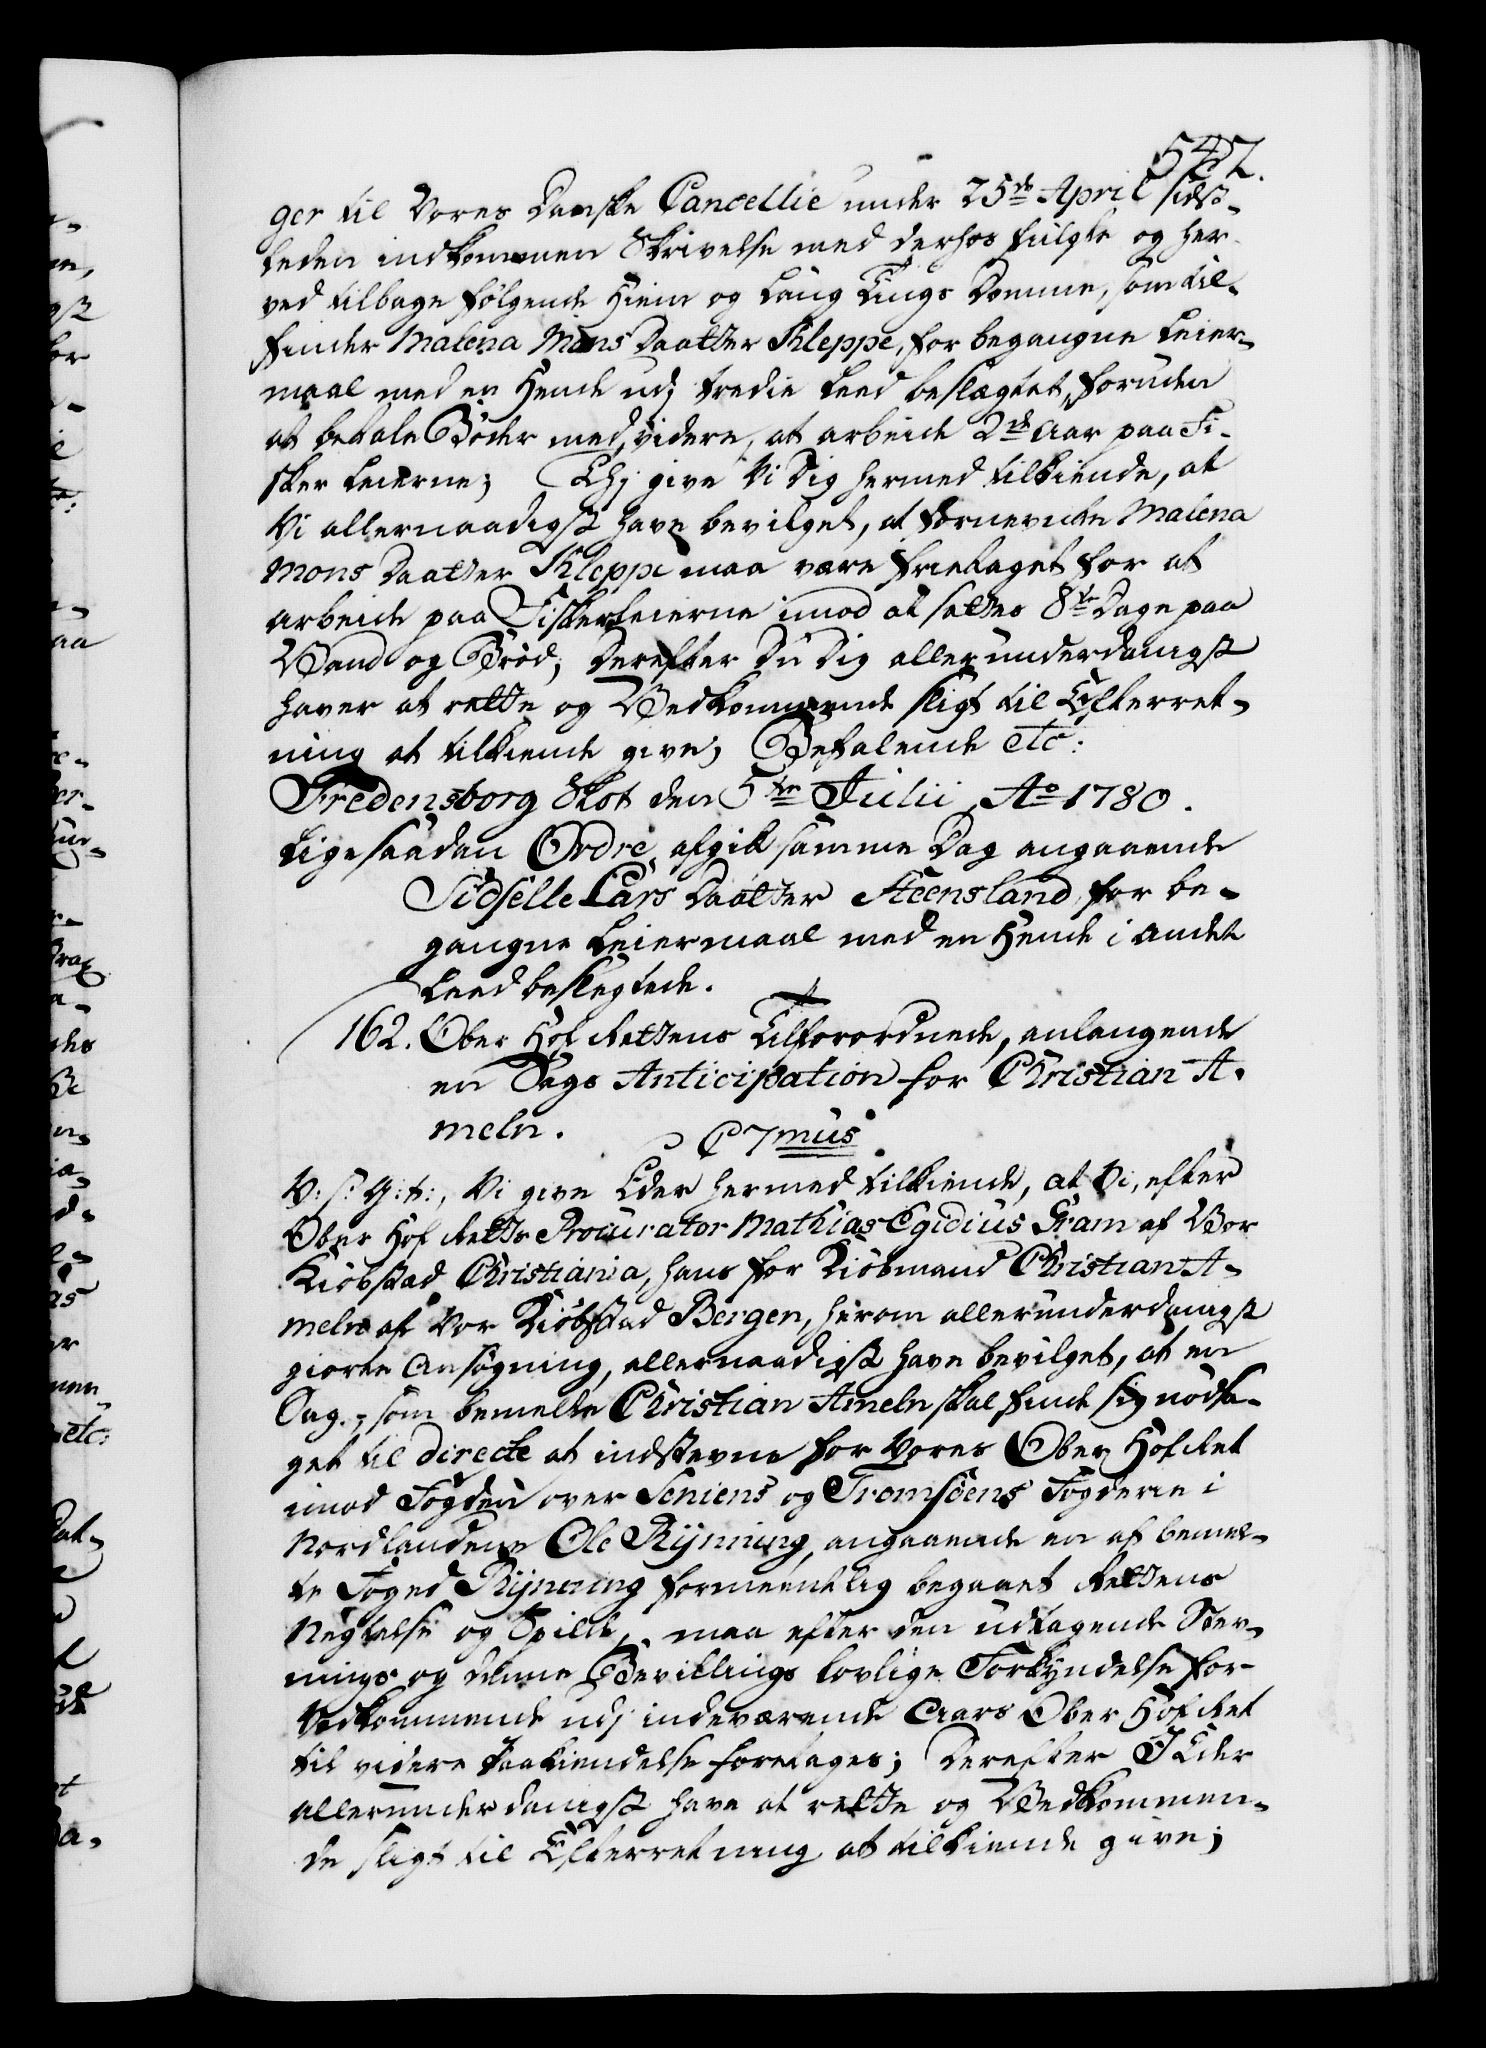 542.
ger til Vores Danske Cancellie under 25de April sidst-
leden indkommen Skrivelse med derhos fulgte og her-
ved tilbage følgende Hiem og Laug Tings Domme, som til-
finder Malena Mons Daatter Kleppe, for begangne Leier-
maal med en Hende udj tredie Leed beslægtet, foruden
at betale Bøder med videre, at arbeide 2de Aar paa Fi-
sker Leierne; Thj give Vi Dig hermed tilkiende, at
Vi allernaadigst have bevilget, at fornevnte Malena
Mons Daatter Kleppe maa være frietaget for at
arbeide paa Fiskerleierne imod at sættes 8te Dage paa
Vand og Brød; Derefter Du Dig allerunderdanigst
haver at rette og Vedkommende sligt til Efterret-
ning at tilkiende give; Befalende etc:
Fredensborg Slot den 5te Julii Ao 1780.
Ligesaadan Ordre afgik samme Dag angaaende
Sidselle Lars Daatter Steensland for be-
gangne Leiermaal med en Hende i andet
Leed beslegtede.
162. Ober Hof Rettens Tilforordnede, anlangende
en Sags Anticipation for Christian A-
meln.
C 7mus
V: s: G: t:, Vi give Eder hermed tilkiende, at Vi, efter
Ober Hof Retts Procurator Mathias Egidius Gram af Vor
Kiøbstad Christiania, hans for Kiøbmand Christian A-
meln af Vor Kiøbstad Bergen, herom allerunderdanigst
giorte Ansøgning, allernaadigst have bevilget, at en
Sag, som bemelte Christian Ameln skal finde sig nødsa-
get til directe at indstevne for Vores Ober Hof Ret
imod Fogden over Seniens og Tromsöens Fogderie i
Nordlandene Ole Rijnning, angaaende en af bemel-
te Foged Rijnning formeentlig begaaet Rettens
Negtelse og Spilde, maa efter den udtagende Stev-
nings og denne Bevillings lovlige Forkyndelse for
Vedkommende udj indeværende Aars Ober Hof Ret
til videre Paakiendelse foretages; Derefter I Eder
allerunderdanigst have at rette og Vedkommen-
de sligt til Efterretning at tilkiende give;